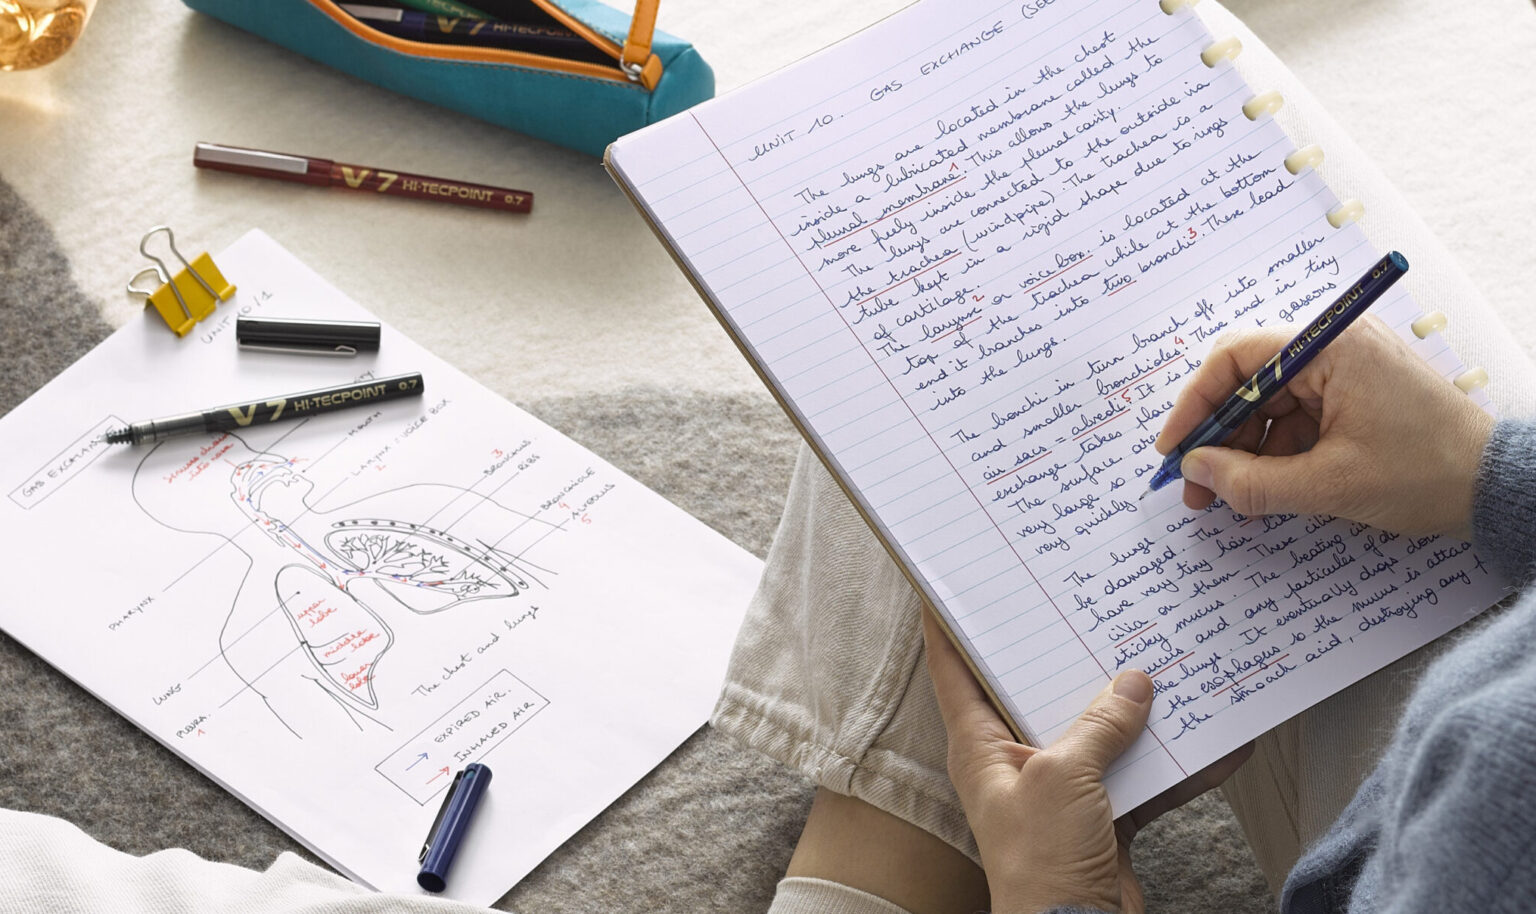 V7 HI-TECPOINT
V7 HI-TECPOINT 0.7
UNIT 10. GAS EXCHANGE (SEE
The lungs are located in the chest
inside a lubricated membrane called the
plural membrane.1 This allows the lungs to
more feely inside the pleural cavity.
The lungs are connected to the outside via
the trachea (windpipe). The trachea is a
tube kept in a rigid shape due to rings
of cartilage.
The larynx 2 or voice box. is located at the
top of the trachea while at the bottom
end it branches into two bronchi 3. These lead
into the lungs.
The bronchi in turn branch off into smaller
and smaller bronchioles 4. These end in tiny
air sacs = alveoli 5. It is he gaseous
exchange takes place
The surface area
very large so as
very quickly
The lungs are ve
be damaged. The ce
have very tiny hair like
cilia on them. These cili
sticky mucus. The beating ci
mucus and any particules of di
the lungs. It eventually drops dow
the esophagus so the mucus is attac
the stmoach acid, destroying any
V7 HI-TECPOINT 0.7
UNIT 10/1
V7 HI-TECPOINT 0.7
GAS EXCHANGE
MOUTH
LARYNX / VOICE BOX
2
3
BRONCHUS
RIBS
BRONCHIOLE
4
ALVEOLUS
5
PHARYNX
upper
lobe
middle
lobe
lower
lobe
LUNG
PLEURA.
1
The chest and lungs
EXPIRED AIR.
INHALED AIR